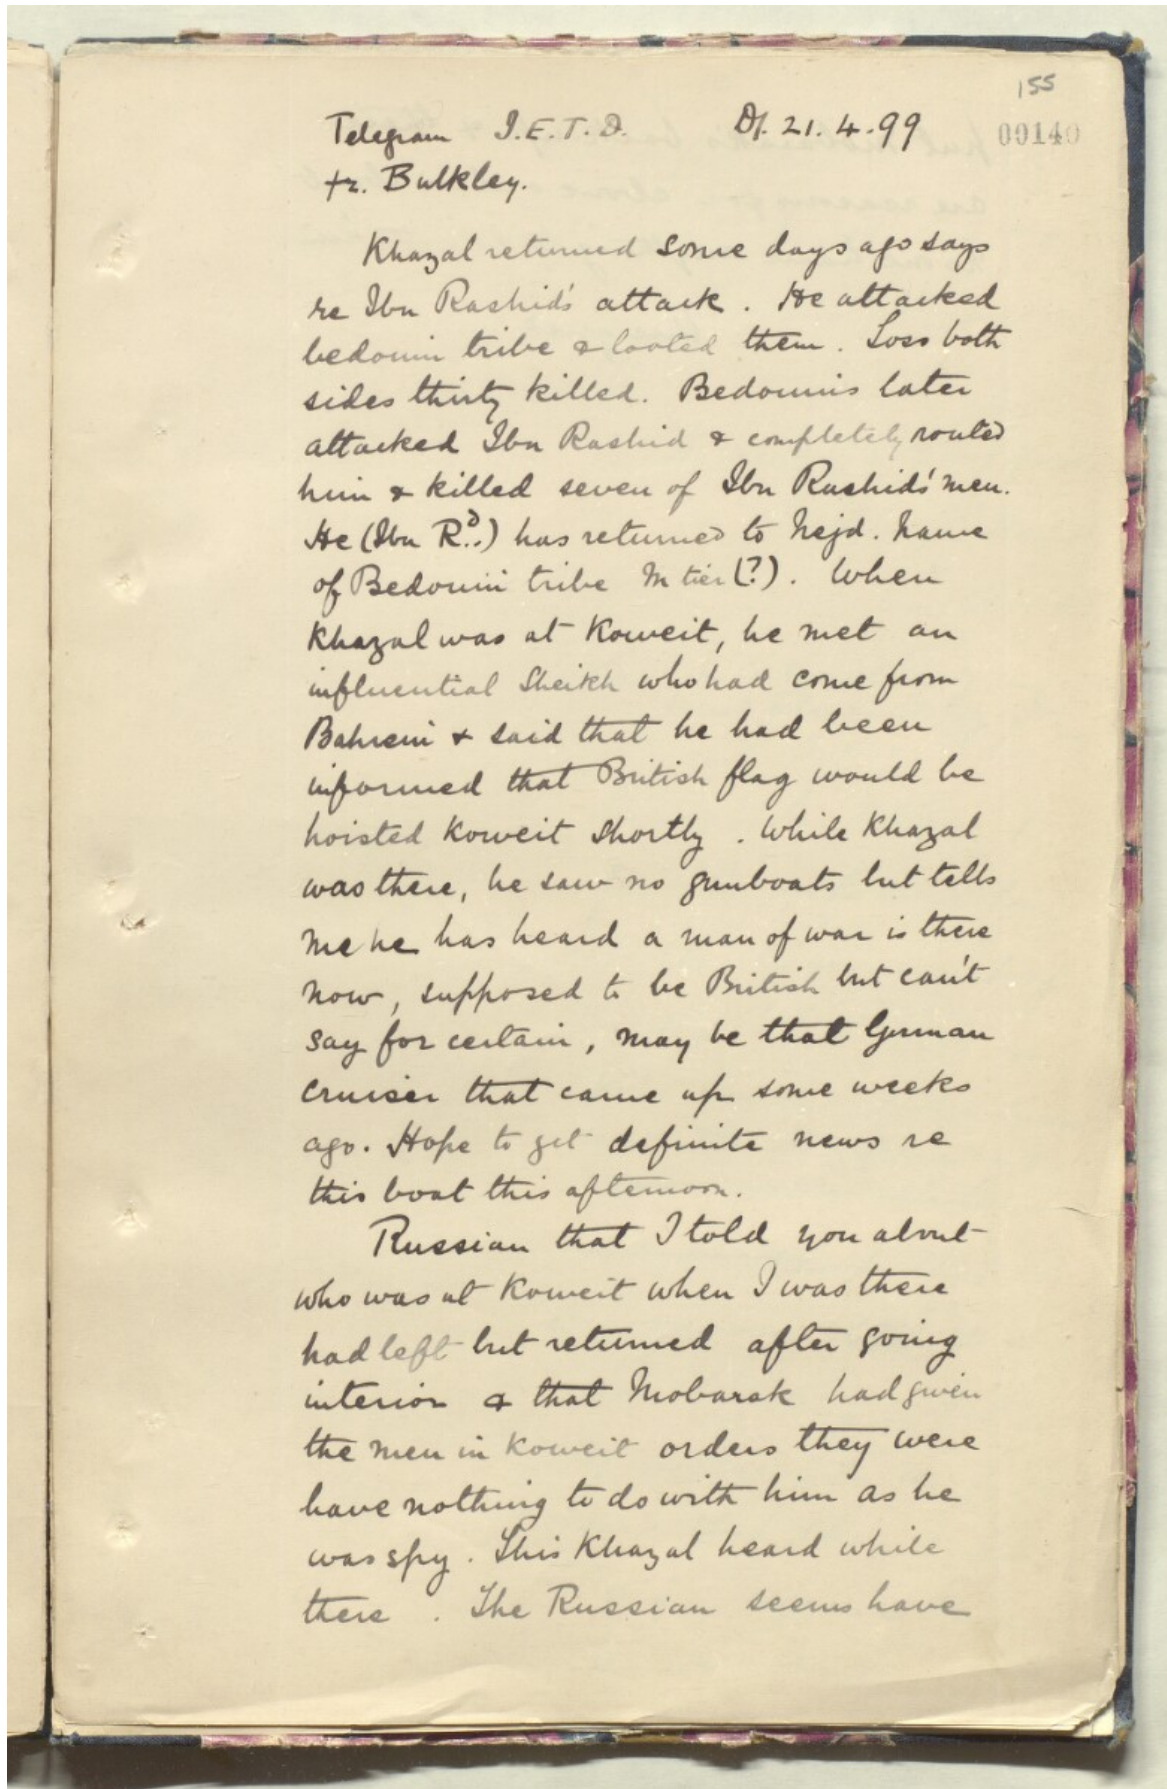 155
00140
Telegram I.E.T.D. Dt. 21.4.99
fr. Bulkley.
Khazal returned some days ago says
re Ibn Rashid's attack. He attacked
bedouin tribe & looted them. Loss both
sides thirty killed. Bedouins later
attacked Ibn Rashid & completely routed
him & killed seven of Ibn Rashid's men.
He (Ibn Rd..) has returned to Nejd. Name
of Bedouin tribe Mtier (?). When
Khazal was at Koweit, he met an
influential Sheikh who had come from
Bahrein & said that he had been
informed that British flag would be
hoisted Koweit shortly. While Khazal
was there, he saw no gunboats but tells
me he has heard a man of war is there
now, supposed to be British but can't
say for certain, may be that German
cruiser that came up some weeks
ago. Hope to get definite news re
this boat this afternoon.
Russian that I told you about
who was at Koweit when I was there
had left but returned after going
interior & that Mobarak had given
the men in Koweit orders they were
have nothing to do with him as he
was spy. This Khazal heard while
there. The Russian seems have